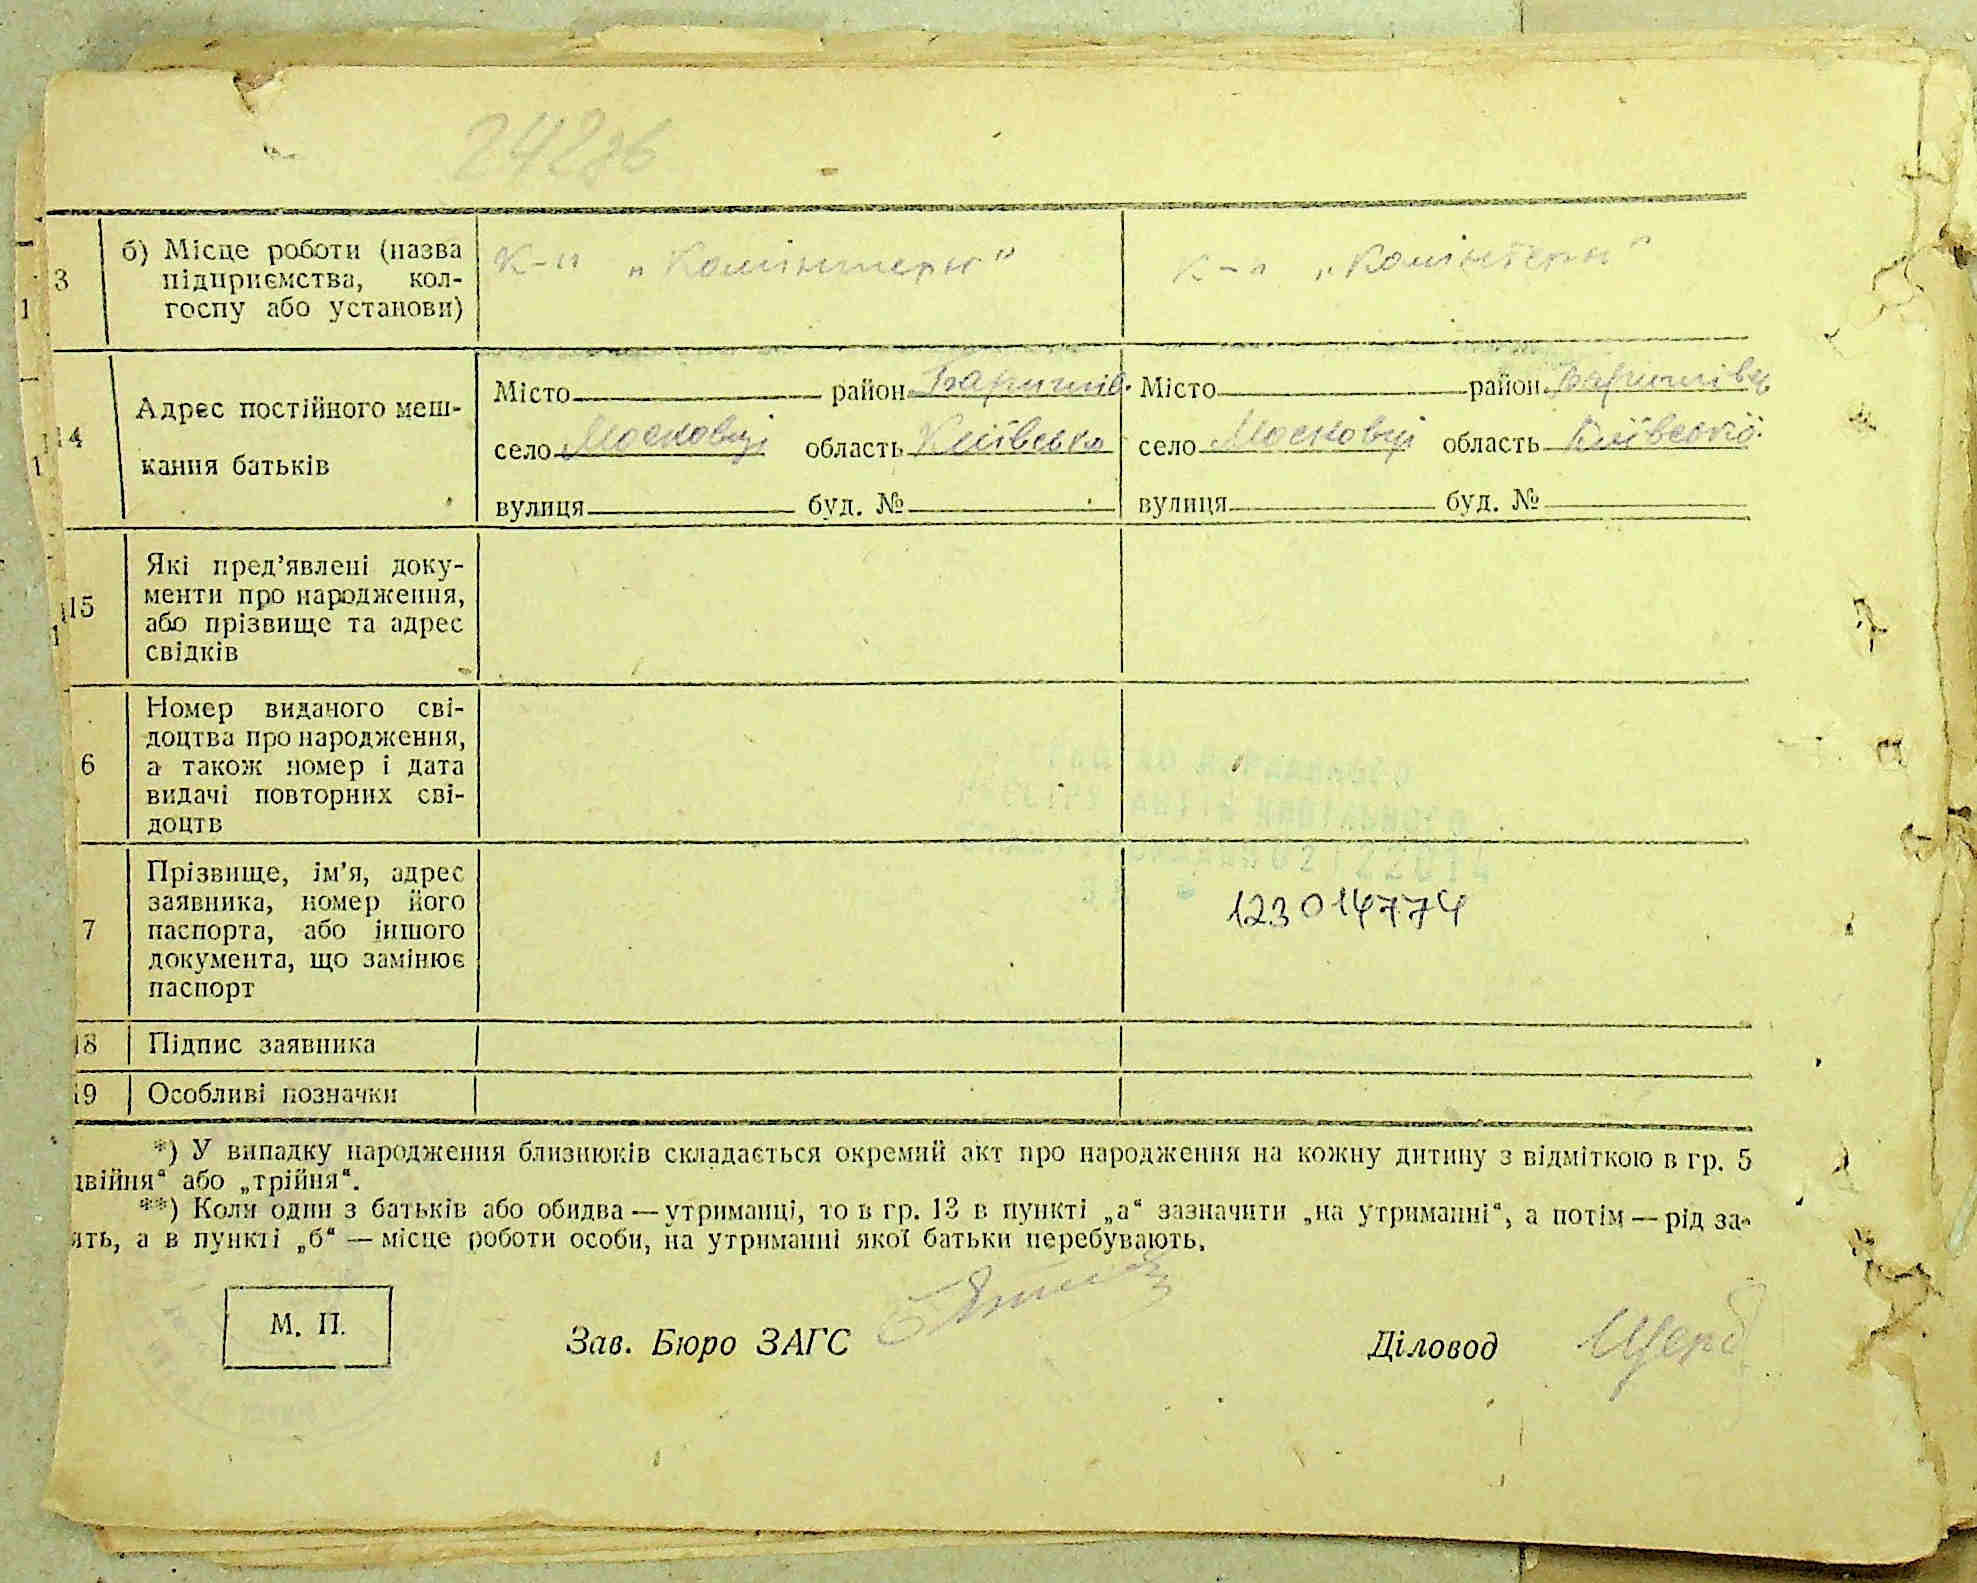 242зв
3 б) Місце роботи (назва підприємства, колгоспу або установи) К-п „Комінтерн" К-п „Комінтерн"
14 Адрес постійного меш-
кання батьків
Місто район Баришів. Місто район Баришівсь
село Московці область Київська село Московці область Київської
вулиця буд. № вулиця буд. №
15 Які пред'явлені доку-
менти про народження,
або прізвище та адрес
свідків
6 Номер виданого сві-
доцтва про народження,
а також номер і дата
видачі повторних сві-
доцтв
7 Прізвище, ім'я, адрес
заявника, номер його
паспорта, або іншого
документа, що замінює
паспорт
123014774
18 Підпис заявника
19 Особливі позначки
*) У випадку народження близнюків складається окремий акт про народження на кожну дитину з відміткою в гр. 5
двійня" або „трійня".
**) Коли один з батьків або обидва — утриманці, то в гр. 13 в пункті „а" зазначити „на утриманні", а потім — рід за-
ять, а в пункті „б" — місце роботи особи, на утриманні якої батьки перебувають.
М. П.
Зав. Бюро ЗАГС Діловод Щерб